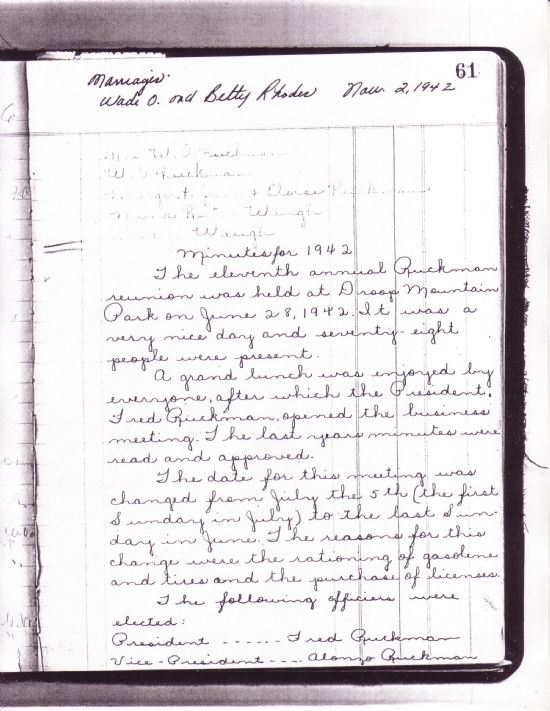 61
Marriages:
Wade O. and Betty Rhodes Nov. 2, 1942
Mrs W. J. Ruckman
W. J. Ruckman
& Eloise Ruckman
Waugh
Waugh
Minutes for 1942
The eleventh annual Ruckman
reunion was held at Droop Mountain
Park on June 28, 1942. It was a
very nice day and seventy-eight
people were present.
A grand lunch was enjoyed by
everyone, after which the President,
Fred Ruckman, opened the business
meeting. The last years minutes were
read and approved.
The date for this meeting was
changed from July the 5th (the first
Sunday in July) to the last Sun-
day in June. The reasons for this
change were the rationing of gasolene
and tires and the purchase of licenses.
The following officiers were
elected:
President ------ Fred Ruckman
Vice-President ---- Alonzo Ruckman